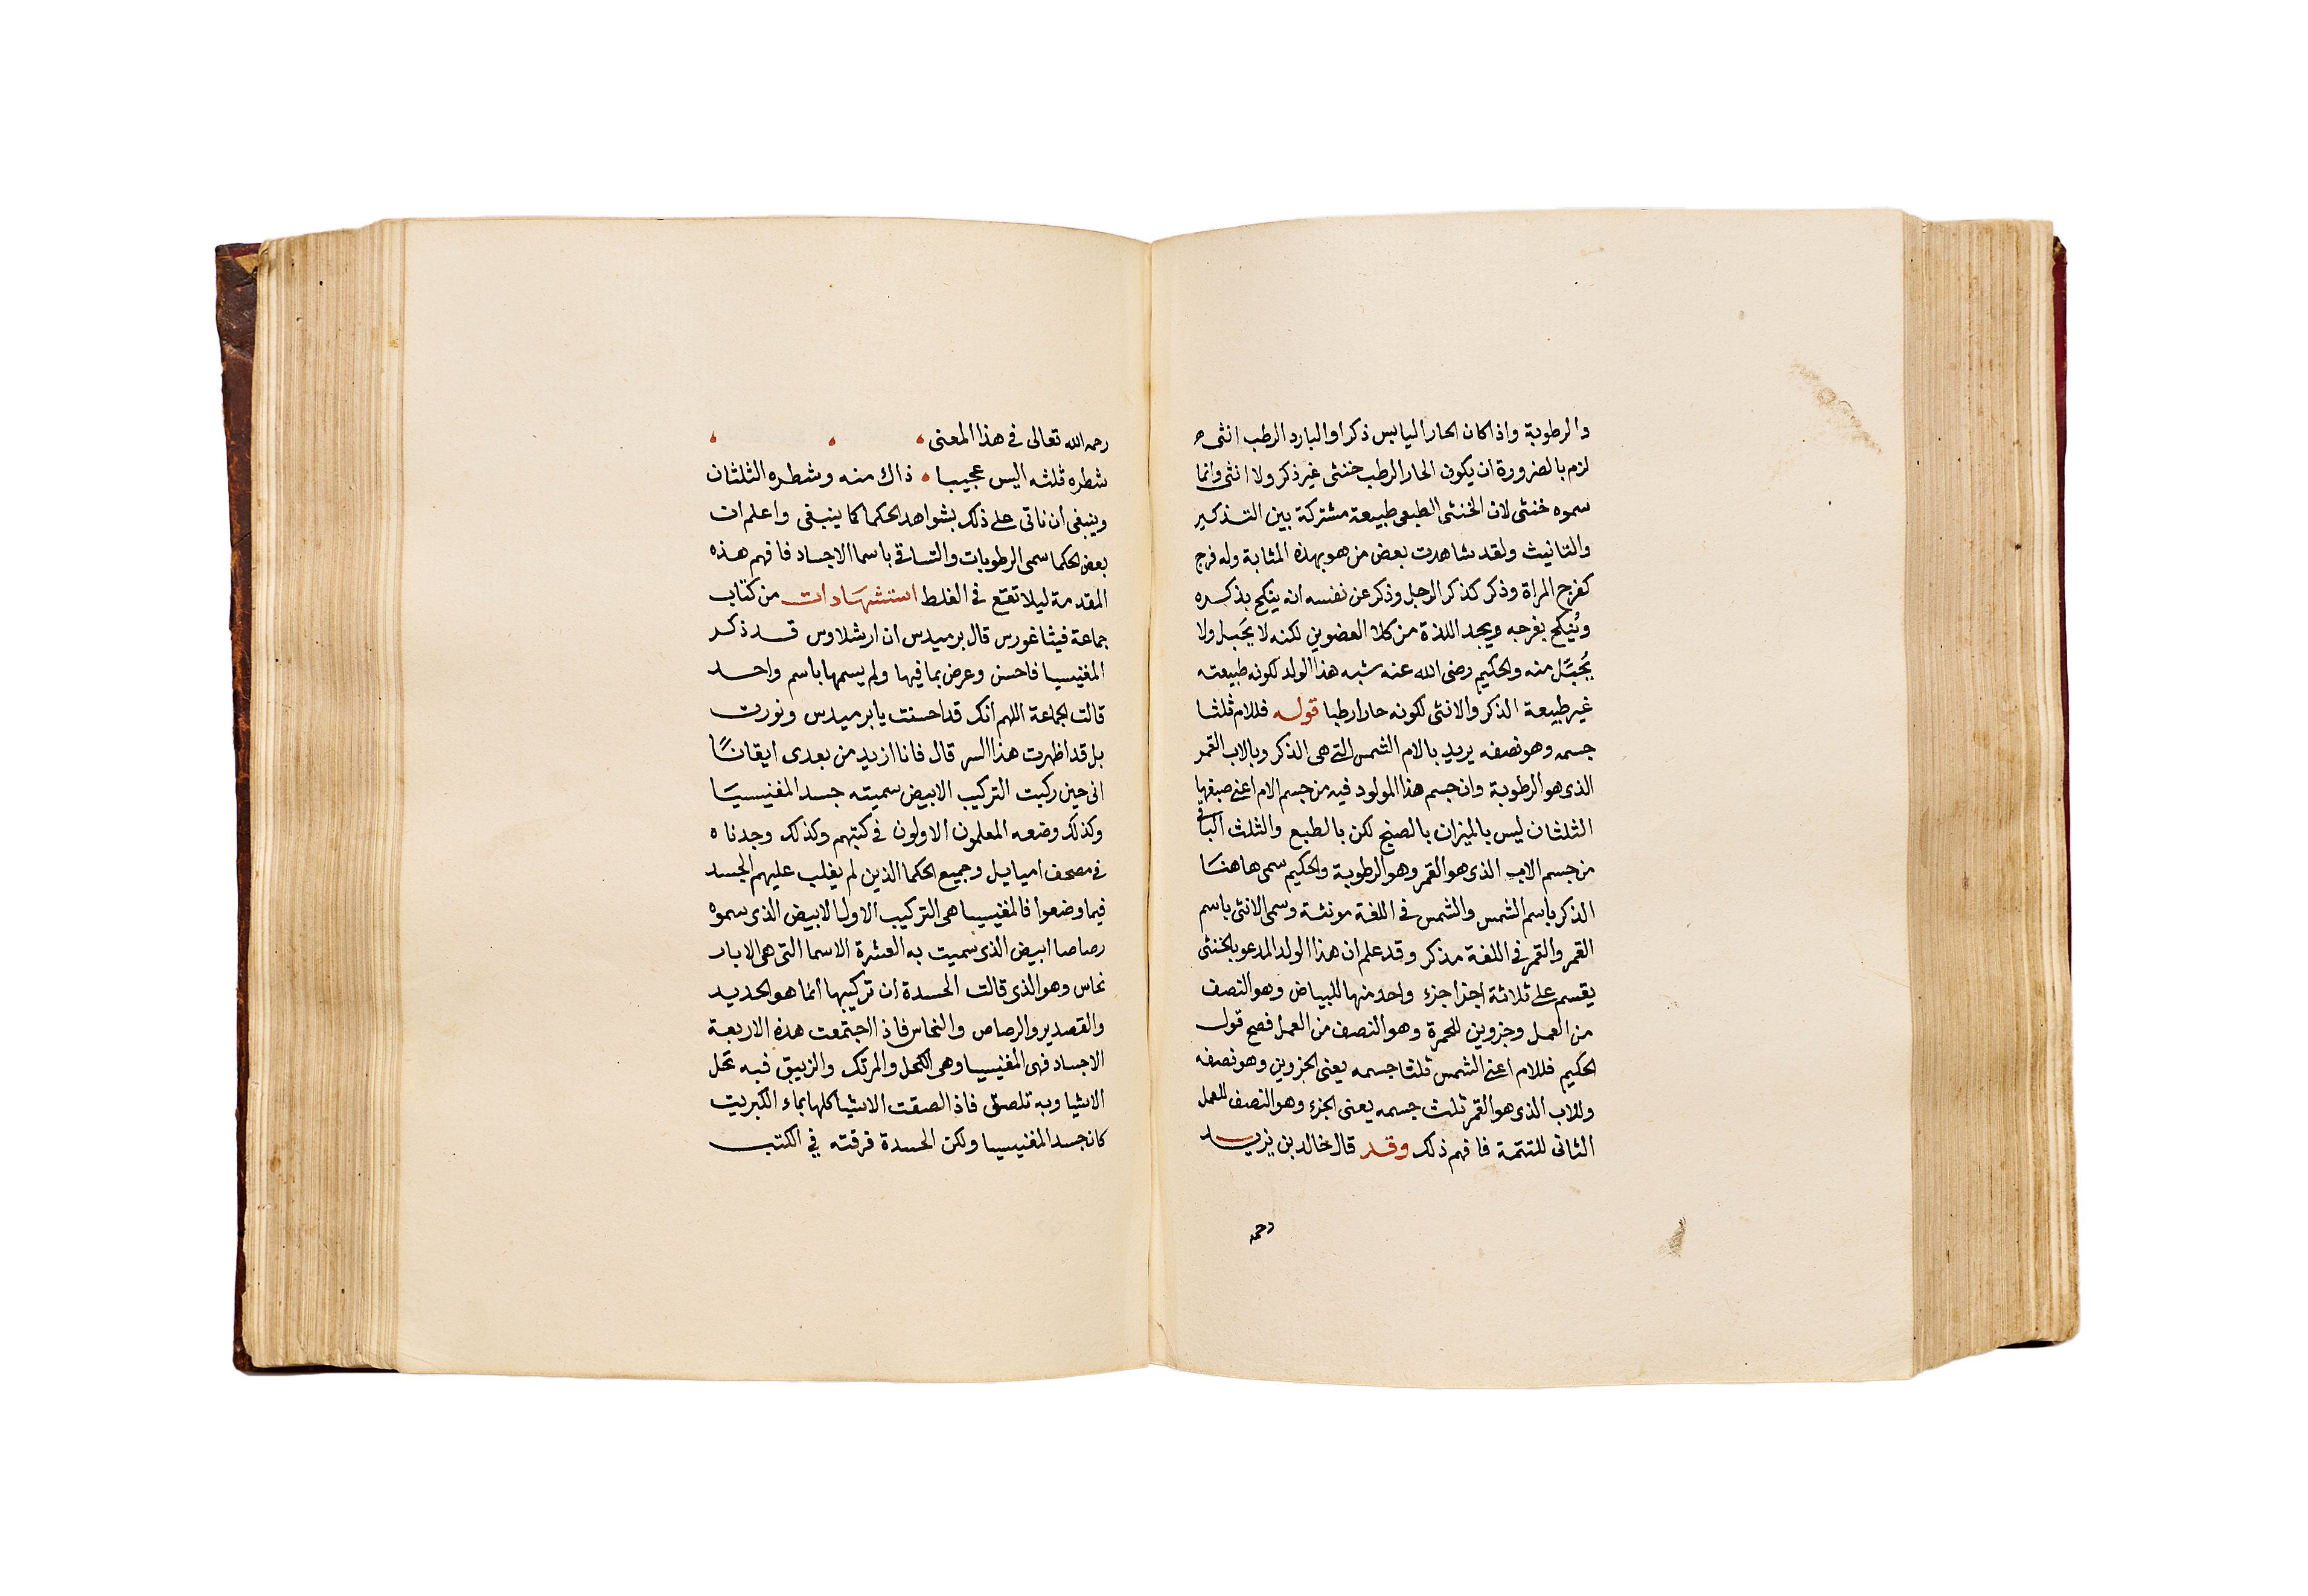 والرطوبة واذا كان الحار اليابس ذكرا والبارد الرطب انثى
لزم بالضرورة ان يكون الحار الرطب خنثى غير ذكر ولا انثى وانما
سموه خنثى لان الخنثى الطبعى طبيعة مشتركة بين التذكير
والتانيث ولقد شاهدت بعض من هو بهذه المثابة وله فرج
كفرج المراة وذكر كذكر الرجل وذكر عن نفسه انه ينكح بذكره
ويُنكح بفرجه ويجد اللذة من كلا العضوين لكنه لا يَحبل ولا
يُحبَّل منه والحكيم رضى الله عنه شبه هذا الولد لكونه طبيعته
غير طبيعة الذكر والانثى لكونه حارا رطبا قوله فللام ثلثا
جسمه وهو نصفه يريد بالام الشمس التى هى الذكر وبالاب القمر
الذى هو الرطوبة وان جسم هذا المولود فيه من جسم الام اعنى صبغها
الثلثان ليس بالميزان بالصنج لكن بالطبع والثلث الباقى
من جسم الاب الذى هو القمر وهو الرطوبة والحكيم سمى هاهنا
الذكر باسم الشمس والشمس فى اللغة مونثة وسمى الانثى باسم
القمر والقمر فى اللغة مذكر وقد علم ان هذا الولد المدعو بالخنثى
يقسم على ثلاثة اجزا جزء واحد منها للبياض وهو النصف
من العمل وجزوين للحمرة وهو النصف من العمل فصح قول
الحكيم فللام اعنى الشمس ثلثا جسمه يعنى الجزوين وهو نصفه
وللاب الذى هو القمر ثلث جسمه يعنى الجزء وهو النصف للعمل
الثانى للتتمة فافهم ذلك وقد قال خالد بن يزيد
رحمه
رحمه الله تعالى فى هذا المعنى
شطره ثلثه اليس عجيبا ذاك منه وشطره الثلثان
وينبغى ان ناتى على ذلك بشواهد الحكما كما ينبغى واعلم ان
بعض الحكما سمى الرطوبات والتساقى باسما الاجساد فافهم هذه
المقدمة ليلا تقع فى الغلط استشهادات من كتاب
جماعة فيثاغورس قال برميدس ان ارشلاوس قد ذكر
المغنيسيا فاحسن وعرض بما فيها ولم يسمها باسم واحد
قالت الجماعة اللهم انك قد احسنت يا برميدس ونورت
بل قد اظهرت هذا السر قال فانا ازيد من بعدى ايقانًا
انى حين ركبت التركيب الابيض سميته جسد المغنيسيا
وكذلك وضعه المعلمون الاولون فى كتبهم وكذلك وجدناه
فى مصحف اميايل وجميع الحكما الذين لم يغلب عليهم الحسد
فيما وضعوا فالمغنيسيا هى التركيب الاول الابيض الذى سموه
رصاصا ابيض الذى سميت به العشرة الاسما التى هى الابار
نحاس وهو الذى قالت الحسدة ان تركيبها انما هو الحديد
والقصدير والرصاص والنحاس فاذا اجتمعت هذه الاربعة
الاجساد فهى المغنيسيا وهى الكحل والمرتك والزيبق فبه تحل
الاشيا وبه تلصق فاذا الصقت الاشيا كلها بماء الكبريت
كان جسد المغنيسيا ولكن الحسدة فرقته فى الكتب